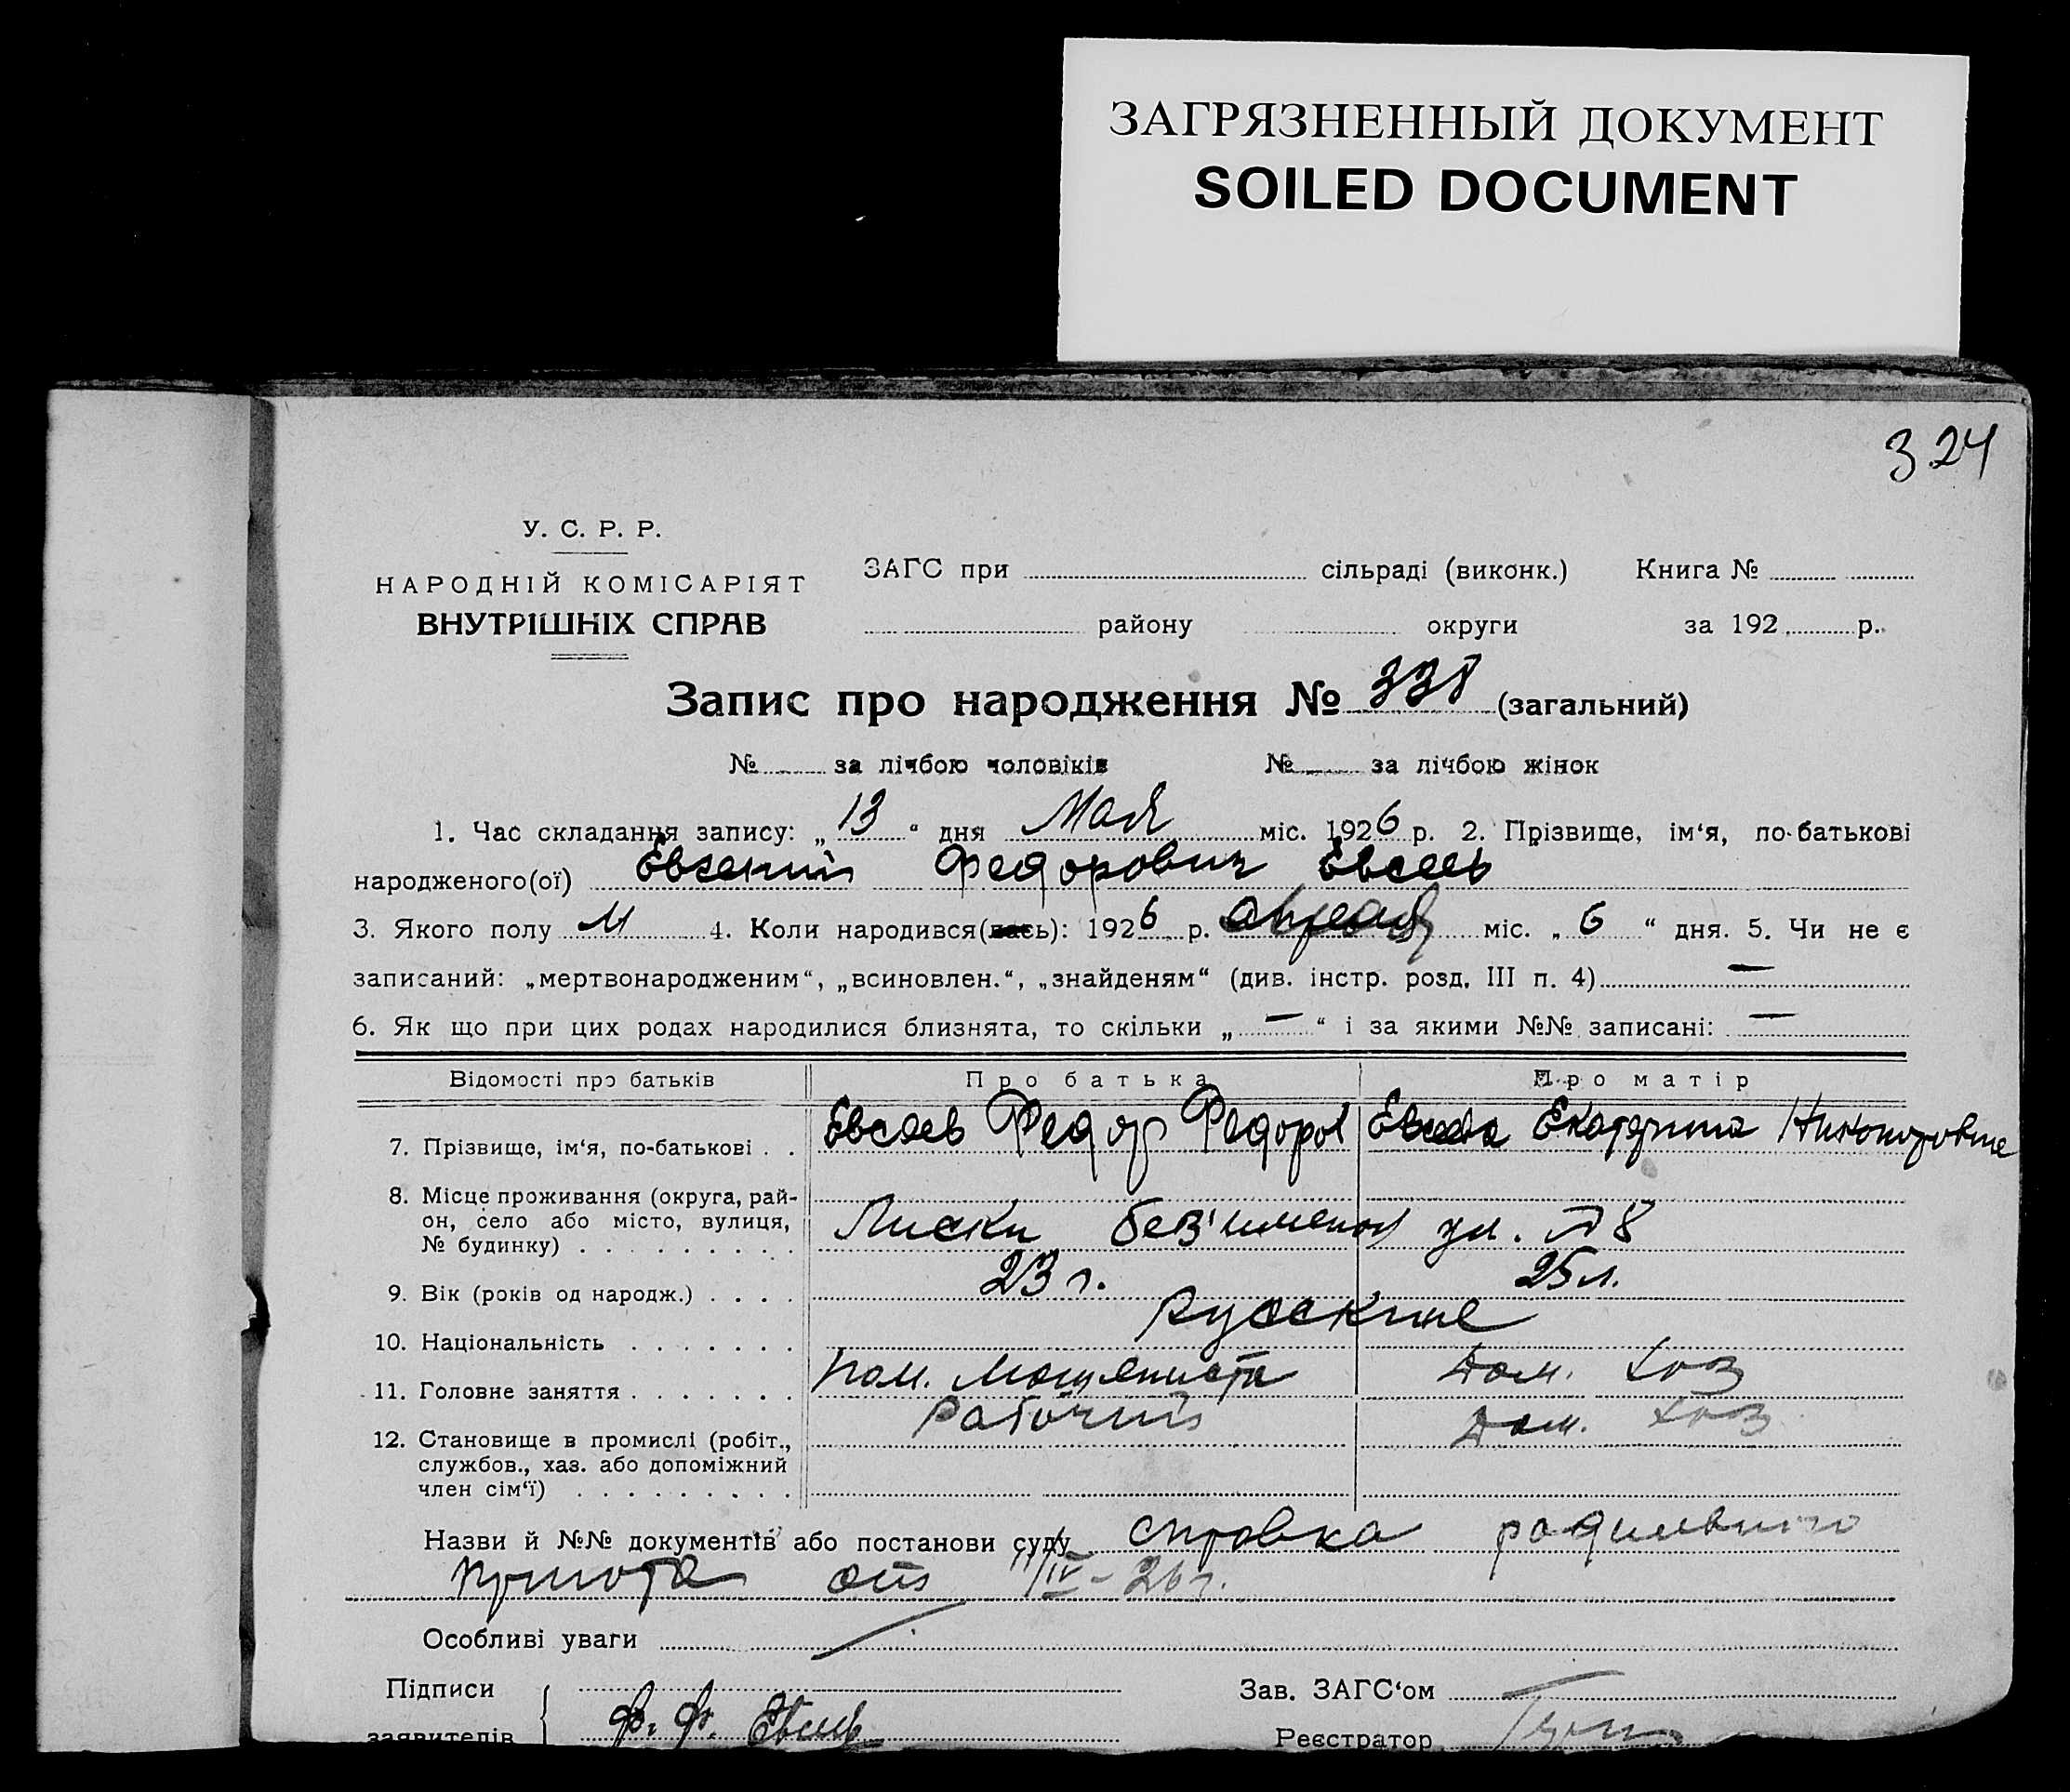 ЗАГРЯЗНЕННЫЙ ДОКУМЕНТ
SOILED DOCUMENT
324
У. С. Р. Р.
НАРОДНІЙ КОМІСАРІЯТ
ВНУТРІШНІХ СПРАВ
ЗАГС при сільраді (виконк.) Книга №
району округи за 192 р.
Запис про народження № 338 (загальний)
№ за лічбою чоловіків № за лічбою жінок
1. Час складання запису: „13“ дня Мая міс. 1926 р. 2. Прізвище, ім‘я, по-батькові
народженого(ої) Евгений Федорович Евсеев
3. Якого полу М 4. Коли народився(лась): 1926 р. апреля міс. „6“ дня. 5. Чи не є
записаний: „мертвонародженим“, „всиновлен.“, „знайденям“ (див. інстр. розд. III п. 4) —
6. Як що при цих родах народилися близнята, то скільки „—“ і за якими №№ записані: —
Відомості про батьків Про батька Про матір
7. Прізвище, ім‘я, по-батькові . . Евсеев Федор Федоров Евсеева Екатерина Никаноровне
8. Місце проживання (округа, рай-
он, село або місто, вулиця,
№ будинку) . . . . . . . . . Лиски без'именой ул. №8
9. Вік (років од народж.) . . . . 23 г. 25 л.
10. Національність . . . . . . . Русские
11. Головне заняття . . . . . . . Пом. Машениста Дом. Хоз
12. Становище в промислі (робіт.,
службов., хаз. або допоміжний
член сім‘ї) . . . . . . . . . Рабочий Дом. Хоз
Назви й №№ документів або постанови суду справка родильного
приюта от 11/IV-26 г.
Особливі уваги
Підписи Зав. ЗАГС‘ом
заявителів Ф. Ф. Евсеев Реєстратор